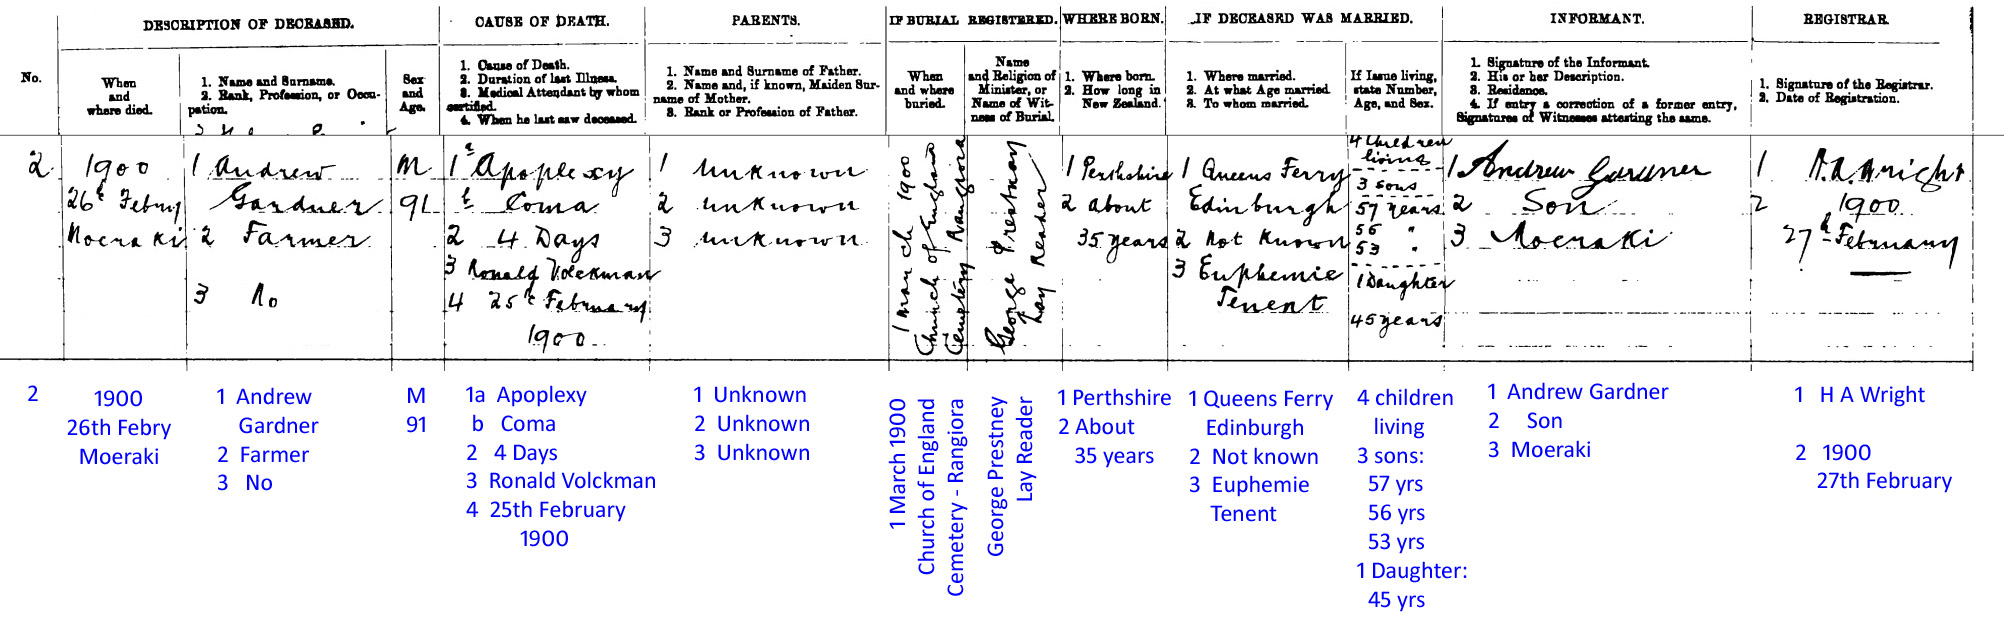 DESCRIPTION OF DECEASED.
CAUSE OF DEATH.
PARENTS.
IF BURIAL REGISTERED.
WHERE BORN.
IF DECEASED WAS MARRIED.
INFORMANT.
REGISTRAR.
No.
When
and
where died.
1. Name and Surname.
2. Rank, Profession, or Occu-
pation.
Sex
and
Age.
1. Cause of Death.
2. Duration of last Illness.
3. Medical Attendant by whom
certified.
4. When he last saw deceased.
1. Name and Surname of Father.
2. Name and, if known, Maiden Sur-
name of Mother.
3. Rank or Profession of Father.
When
and where
buried.
Name
and Religion of
Minister, or
Name of Wit-
ness of Burial.
1. Where born.
2. How long in
New Zealand.
1. Where married.
2. At what Age married.
3. To whom married.
If Issue living,
state Number,
Age, and Sex.
1. Signature of the Informant.
2. His or her Description.
3. Residence.
4. If entry a correction of a former entry,
Signatures of Witnesses attesting the same.
1. Signature of the Registrar.
2. Date of Registration.
2
1900
26th Febry
Moeraki
1 Andrew
Gardner
2 Farmer
3 No
M
91
1a Apoplexy
b Coma
2 4 Days
3 Ronald Volckman
4 25th February
1900
1 Unknown
2 unknown
3 unknown
1 March 1900
Church of England
Cemetery Rangiora
George Prestney
Lay Reader
1 Perthshire
2 about
35 years
1 Queens Ferry
Edinburgh
2 Not Known
3 Euphemie
Tenent
4 Children
living
3 sons
57 years
56 "
53 "
1 Daughter
45 years
1 Andrew Gardner
2 Son
3 Moeraki
1 H.A. Wright
2 1900
27th February
2
1900
26th Febry
Moeraki
1 Andrew
Gardner
2 Farmer
3 No
M
91
1a Apoplexy
b Coma
2 4 Days
3 Ronald Volckman
4 25th February
1900
1 Unknown
2 Unknown
3 Unknown
1 March 1900
Church of England
Cemetery - Rangiora
George Prestney
Lay Reader
1 Perthshire
2 About
35 years
1 Queens Ferry
Edinburgh
2 Not known
3 Euphemie
Tenent
4 children
living
3 sons:
57 yrs
56 yrs
53 yrs
1 Daughter:
45 yrs
1 Andrew Gardner
2 Son
3 Moeraki
1 H A Wright
2 1900
27th February